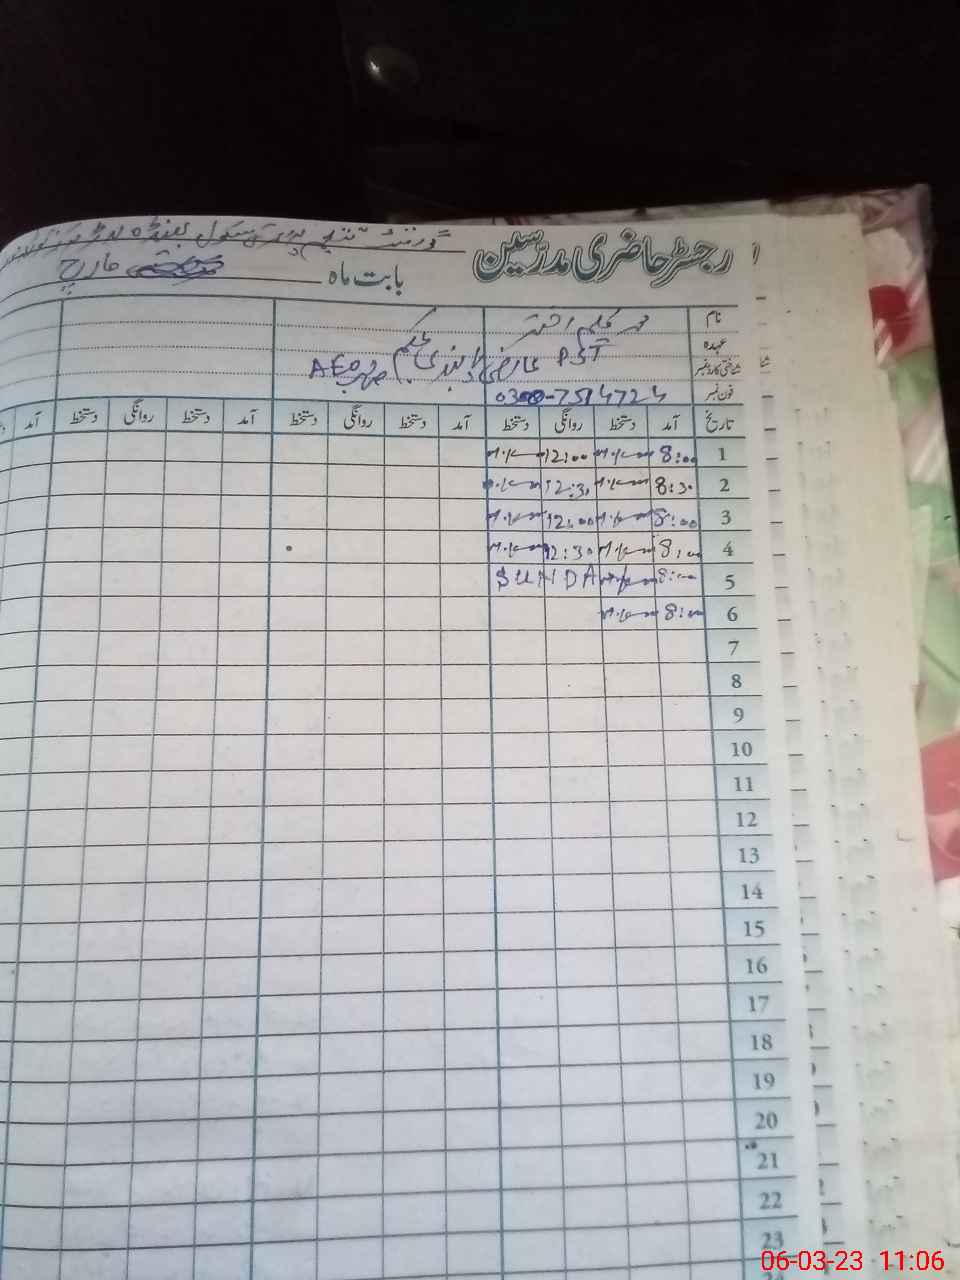 رجسٹر حاضری مدرسین
گورنمنٹ پرائمری سکول
بابت ماہ مارچ
نام محمد کلیم اختر
عہدہ PST عارضی ڈیوٹی بحکم AEO صاحب
شناختی کارڈ نمبر
فون نمبر 0300-7514724
تاریخ آمد دستخط روانگی دستخط آمد دستخط روانگی دستخط آمد دستخط روانگی دستخط آمد
1 8:00 12:00
2 8:30 12:30
3 8:00 12:00
4 8:00 12:30
5 8:00 SUNDA
6 8:00
7
8
9
10
11
12
13
14
15
16
17
18
19
20
21
22
23
24
06-03-23 11:06